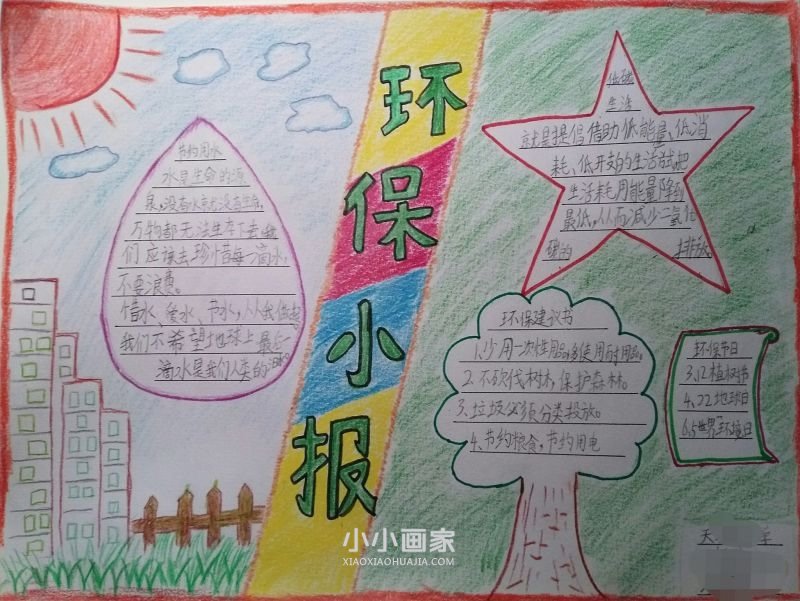 环
保
小
报
节约用水
水是生命的源
泉。没有水就没有生命,
万物都无法生存下去。我
们应该去珍惜每一滴水,
不要浪费。
惜水、爱水、节水,从我做起。
我们不希望地球上最后一
滴水是我们人类的泪水
低碳
生活
就是提倡借助低能量、低消
耗、低开支的生活方式,把
生活耗用能量降到
最低,从而减少二氧化
碳的 排放
环保建议书
1、少用一次性用品,多使用耐用品。
2、不砍伐树木,保护森林。
3、垃圾必须分类投放。
4、节约粮食,节约用电
环保节日
3.12植树节
4.22地球日
6.5世界环境日
小小画家
XIAOXIAOHUAJIA.COM